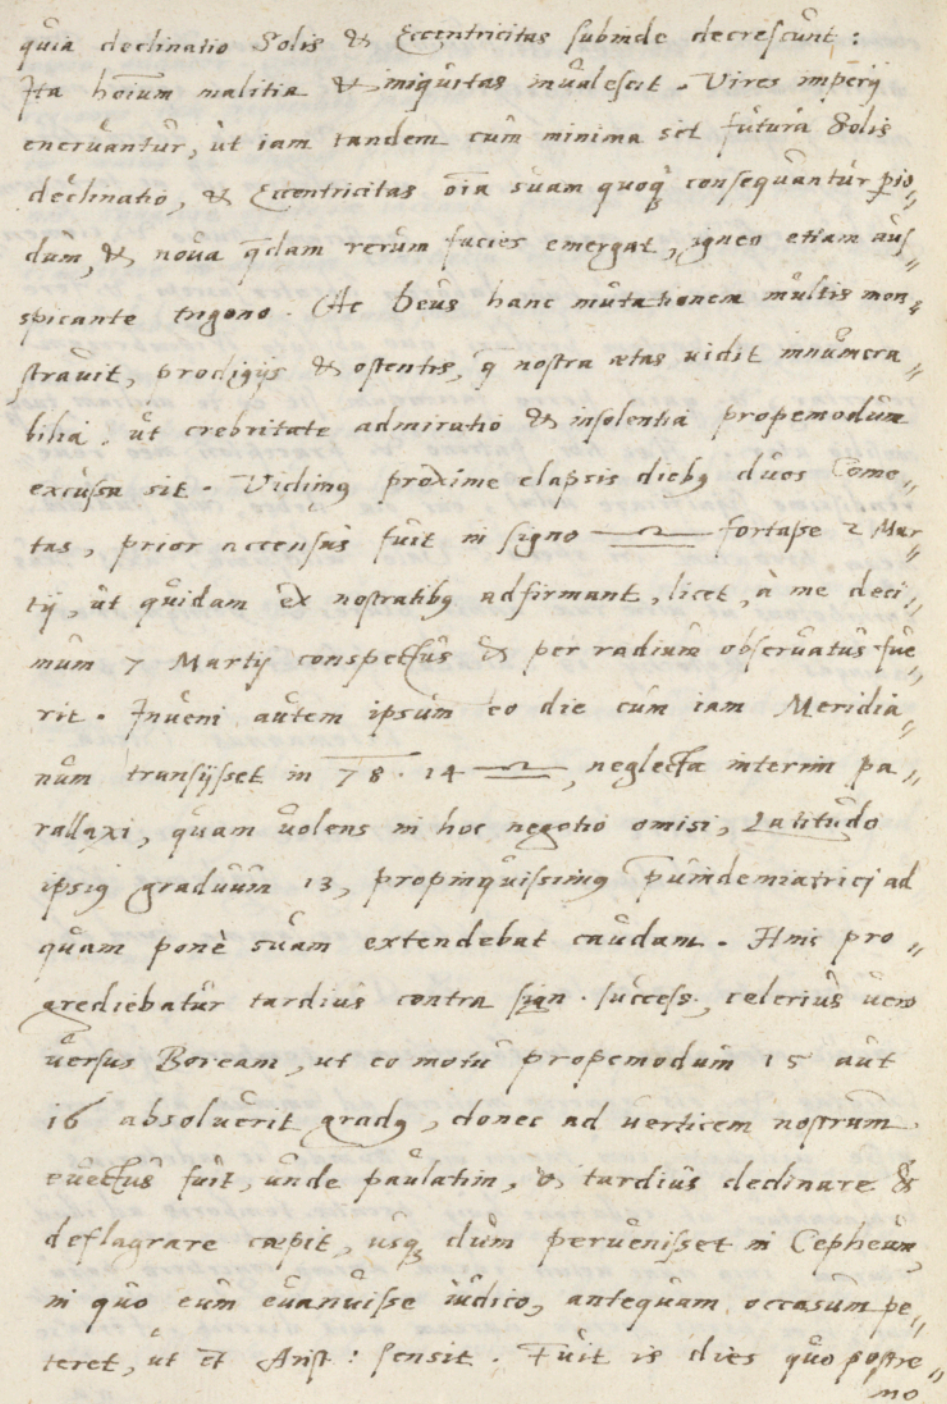 quia declinatio Solis & Eccentricitas subinde decrescunt:
Ita hōium malitia & iniquitas inualescit. Vires imperij
eneruantur, ut iam tandem cum minima sit futura Solis
declinatio, & Eccentricitas oīa suam quoq̨ consequantur pio„
dum, & noua q̄dam rerum facies emergat, igneo etiam aus„
spicante trigono. Ac Deus hanc mutationem multis mon„
strauit, prodigijs & ostentis, q̄ nostra ætas uidit innumera„
bilia. ut crebritate admiratio & insolentia propemodum
excussa sit. Vidimꝰ proxime elapsis diebꝰ duos Come„
tas, prior accensus fuit in signo ♎ fortasse 2 Mar„
tij, ut quidam ex nostratibꝰ adfirmant, licet à me deci„
mum 7 Martij conspectus & per radium obseruatus fue„
rit. Inueni autem ipsum eo die cum iam Meridia„
num transijsset in 78. 14 ♎, neglecta interim pa„
rallaxi, quam uolens in hoc negotio omisi, Latitudo
ipsiꝰ graduum 13, propinquissimꝰ puindemiatrici ad
quam ponè suam extendebat caudam. Hinc pro„
grediebatur tardius contra sign. success., celerius uero
uersus Boream, ut eo motu propemodum 15 aut
16 absoluerit gradꝰ, donec ad uerticem nostrum
euectus fuit, unde paulatim, & tardius declinare &
deflagrare cæpit, usq̨ dum peruenisset in Cepheum,
in quo eum euanuisse iudico, antequam occasum pe„
teret, ut et Arist: sensit. Fuit is dies quo postre„
mo